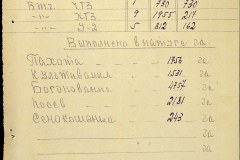 В.т.ч. ЧТЗ 1 730 730
-"- ХТЗ 9 1955 217
-"- У-2 5 812 162
Выполнено в натуре га
Пахота 1356 га
Культивация 1531 га
Боронование 4757 га
Посев 2181 га
Сенокошение 243 га
га